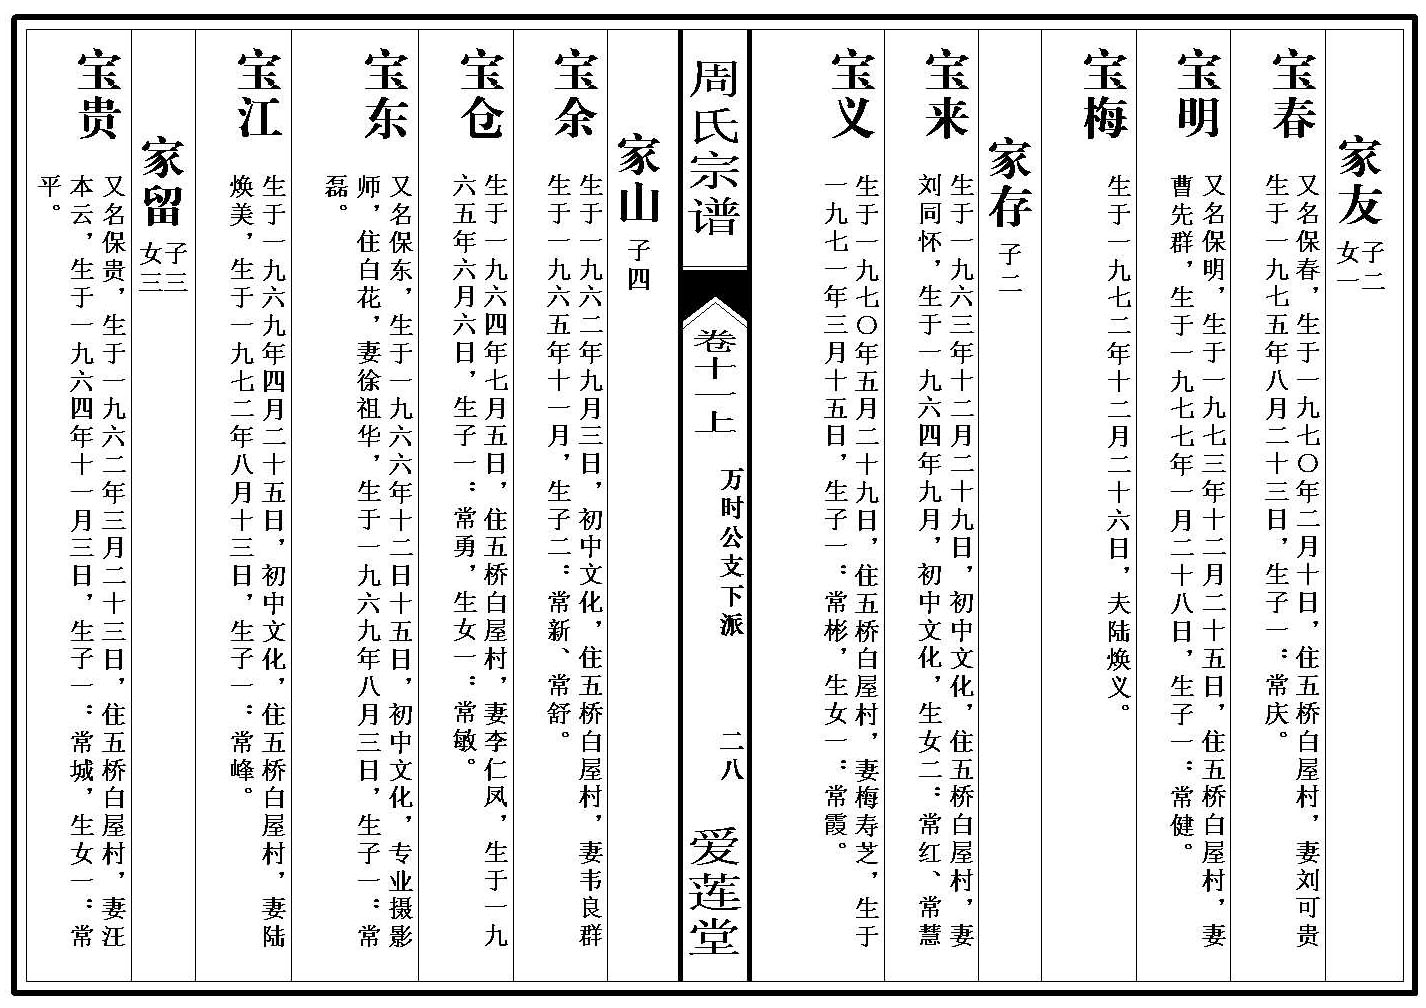 家友
子二
女一
宝春
又名保春，生于一九七〇年二月十日，住五桥白屋村，妻刘可贵
生于一九七五年八月二十三日，生子一：常庆。
宝明
又名保明，生于一九七三年十二月二十五日，住五桥白屋村，妻
曹先群，生于一九七七年一月二十八日，生子一：常健。
宝梅
生于一九七二年十二月二十六日，夫陆焕义。
家存
子二
宝来
生于一九六三年十二月二十九日，初中文化，住五桥白屋村，妻
刘同怀，生于一九六四年九月，初中文化，生女二：常红、常慧
宝义
生于一九七〇年五月二十九日，住五桥白屋村，妻梅寿芝，生于
一九七一年三月十五日，生子一：常彬，生女一：常霞。
周氏宗谱
卷十一上
万时公支下派
二八
爱莲堂
家山
子四
宝余
生于一九六二年九月三日，初中文化，住五桥白屋村，妻韦良群
生于一九六五年十一月，生子二：常新、常舒。
宝仓
生于一九六四年七月五日，住五桥白屋村，妻李仁凤，生于一九
六五年六月六日，生子一：常勇，生女一：常敏。
宝东
又名保东，生于一九六六年十二日十五日，初中文化，专业摄影
师，住白花，妻徐祖华，生于一九六九年八月三日，生子一：常
磊。
宝江
生于一九六九年四月二十五日，初中文化，住五桥白屋村，妻陆
焕美，生于一九七二年八月十三日，生子一：常峰。
家留
子三
女三
宝贵
又名保贵，生于一九六二年三月二十三日，住五桥白屋村，妻汪
本云，生于一九六四年十一月三日，生子一：常城，生女一：常
平。